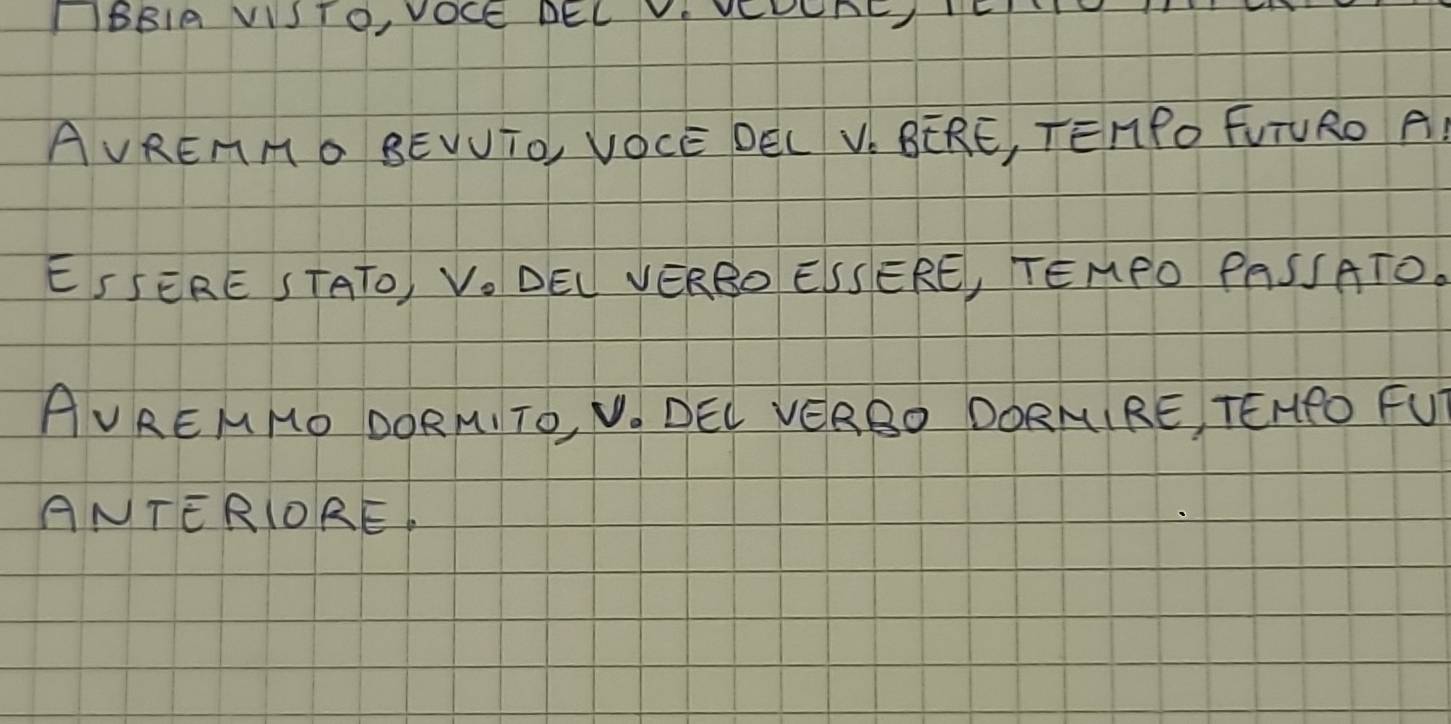 ABBIA VISTO, VOCE DEL V. VEDERE,
AVREMMO BEVUTO, VOCE DEL V. BERE, TEMPO FUTURO
ESSERE STATO, V. DEL VERBO ESSERE, TEMPO PASSATO.
AVREMMO DORMITO, V. DEL VERBO DORMIRE, TEMPO FUT
ANTERIORE.